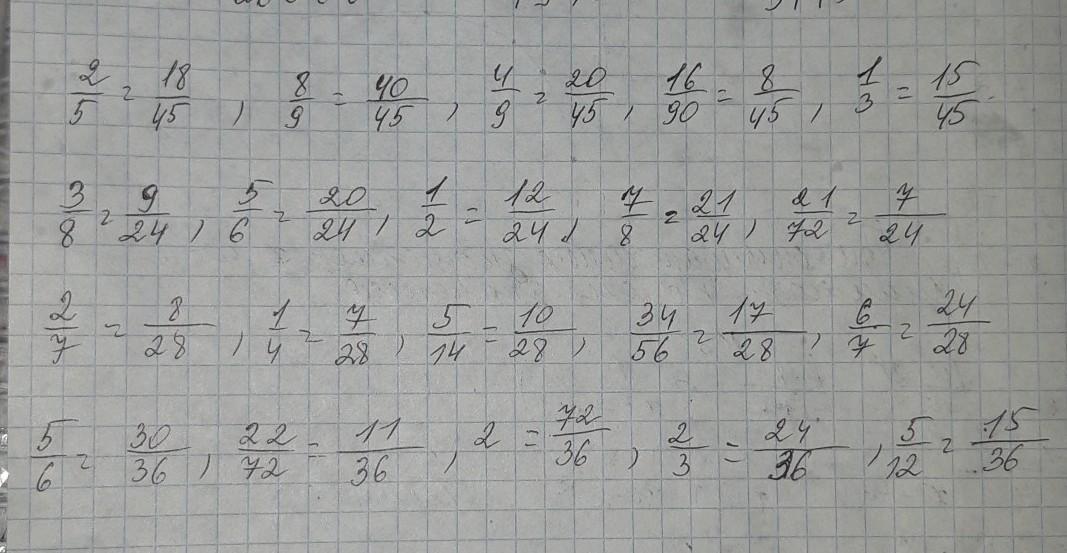 2/5 = 18/45, 8/9 = 40/45, 4/9 = 20/45, 16/90 = 8/45, 1/3 = 15/45
3/8 = 9/24, 5/6 = 20/24, 1/2 = 12/24, 7/8 = 21/24, 21/72 = 7/24
2/7 = 8/28, 1/4 = 7/28, 5/14 = 10/28, 34/56 = 17/28, 6/7 = 24/28
5/6 = 30/36, 22/72 = 11/36, 2 = 72/36, 2/3 = 24/36, 5/12 = 15/36